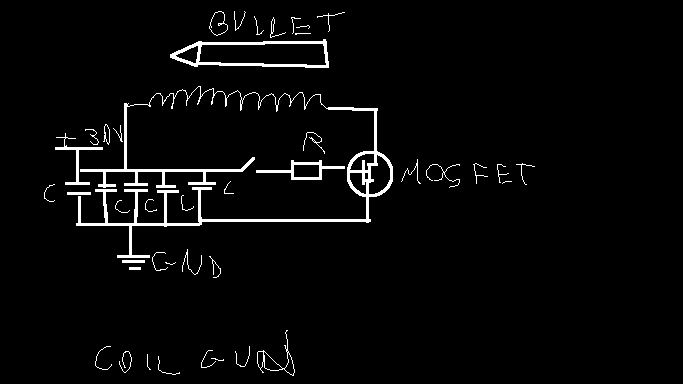 BULLET
+30V
R
MOSFET
C
C
C
C
L
GND
COIL GUN